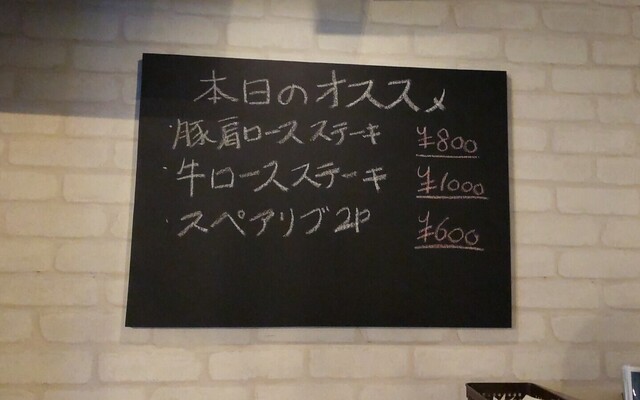 本日のオススメ
・豚肩ロースステーキ ¥800
・牛ロースステーキ ¥1000
・スペアリブ2P ¥600